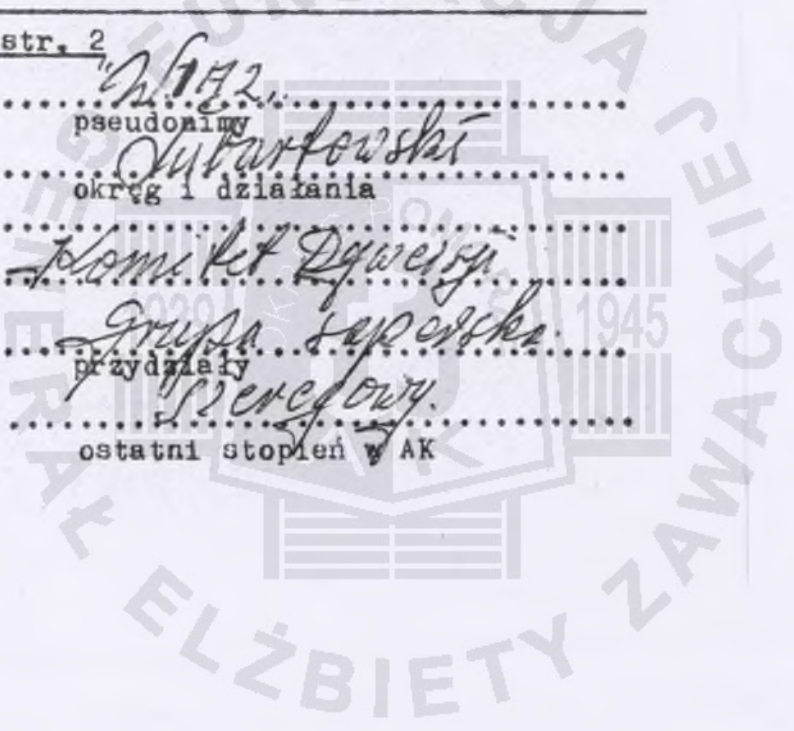 str. 2
pseudonimy
Lubartowski
okręg i działania
Komitet Dywersji
Grupa saperska
przydziały
Szeregowy.
ostatni stopień w AK
1939 1945
FUNDACJA GENERAŁ ELŻBIETY ZAWACKIEJ